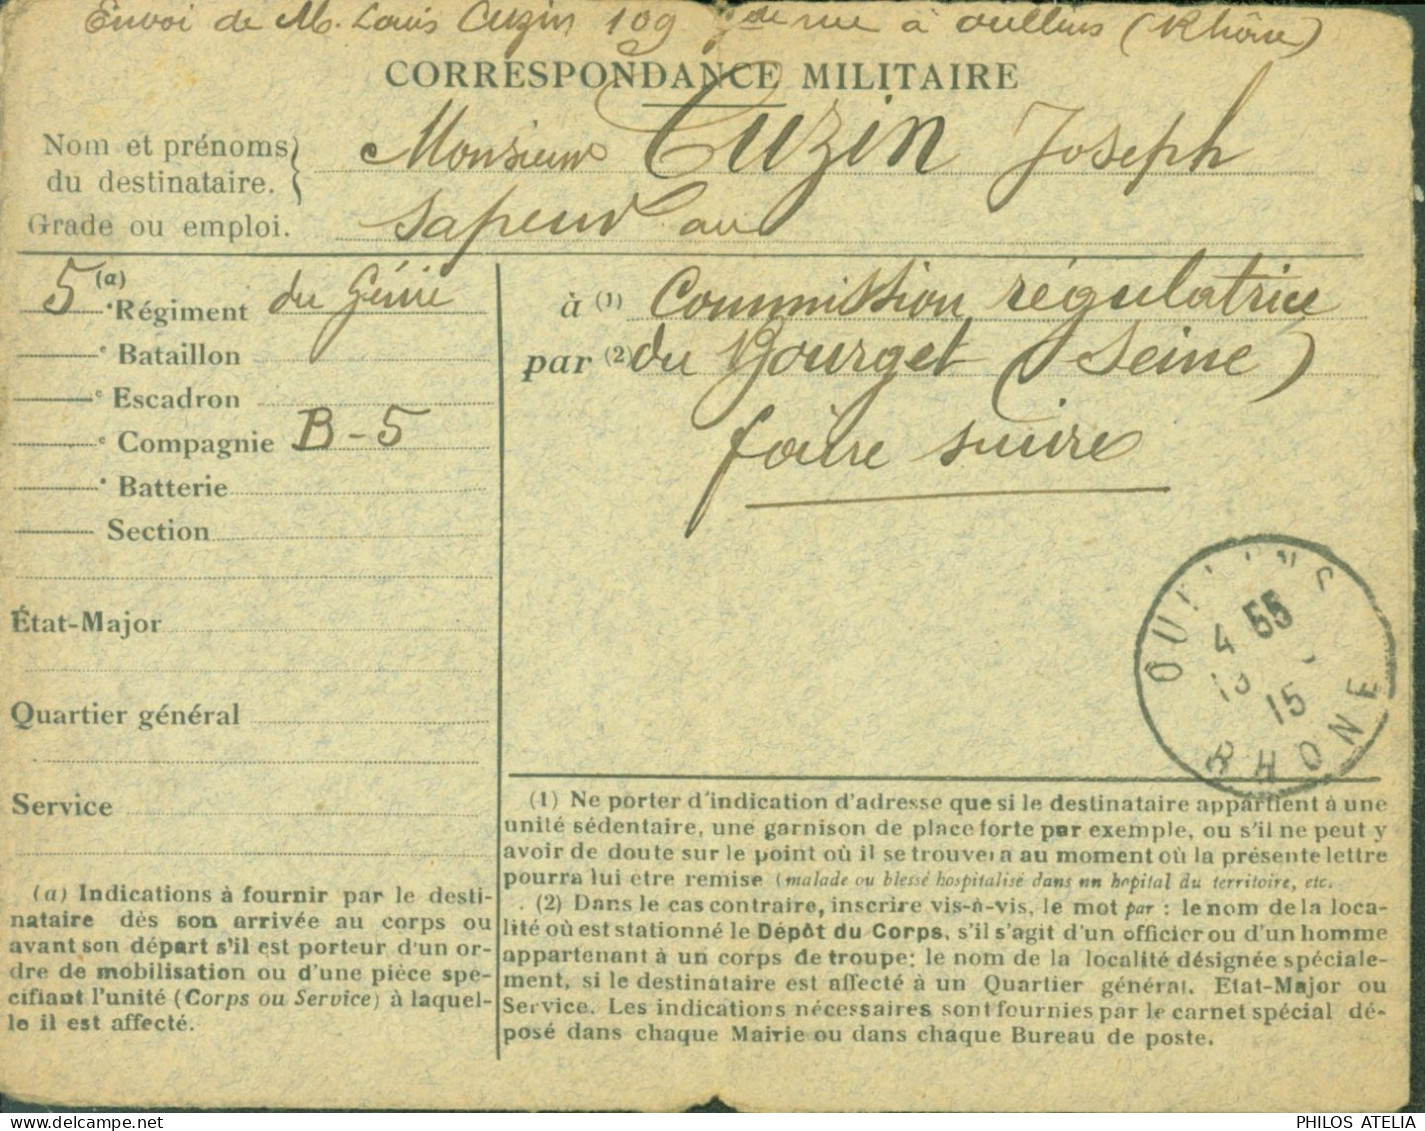 Envoi de M. Louis Cuzin 109 Gde rue à Oullins (Rhône)
CORRESPONDANCE MILITAIRE
Nom et prénoms du destinataire. } Monsieur Cuzin Joseph
Grade ou emploi. Sapeur au
5 (a) e Régiment du Génie
e Bataillon
e Escadron
e Compagnie B-5
e Batterie
Section
État-Major
Quartier général
Service
(a) Indications à fournir par le desti-
nataire dès son arrivée au corps ou
avant son départ s'il est porteur d'un or-
dre de mobilisation ou d'une pièce spé-
cifiant l'unité (Corps ou Service) à laquel-
le il est affecté.
à (1) Commission régulatrice
par (2) du Bourget (Seine)
faire suivre
OULLINS
4 55
15
RHONE
(1) Ne porter d'indication d'adresse que si le destinataire appartient à une
unité sédentaire, une garnison de place forte par exemple, ou s'il ne peut y
avoir de doute sur le point où il se trouvera au moment où la présente lettre
pourra lui etre remise (malade ou blessé hospitalisé dans un hopital du territoire, etc.
(2) Dans le cas contraire, inscrire vis-à-vis, le mot par : le nom de la loca-
lité où est stationné le Dépôt du Corps, s'il s'agit d'un officier ou d'un homme
appartenant à un corps de troupe; le nom de la localité désignée spéciale-
ment, si le destinataire est affecté à un Quartier général, Etat-Major ou
Service. Les indications nécessaires sont fournies par le carnet spécial dé-
posé dans chaque Mairie ou dans chaque Bureau de poste.
PHILOS ATELIA